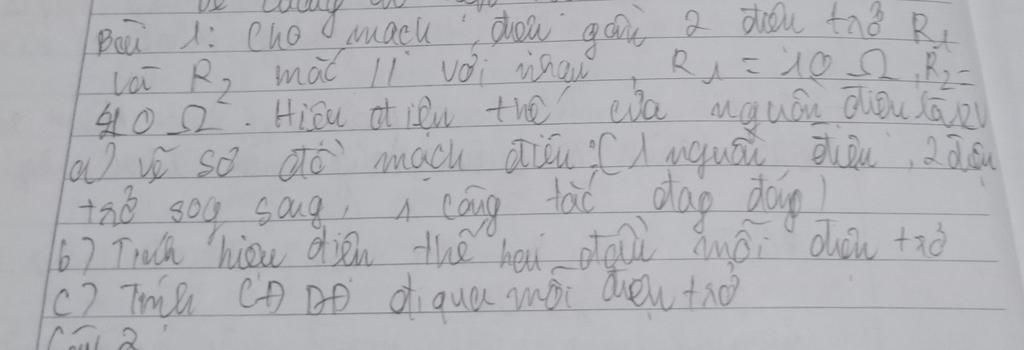 Bài 1: Cho mạch điện gồm 2 điện trở R1
và R2 mắc // với nhau, R1 = 10 Ω, R2 =
40 Ω. Hiệu điện thế của nguồn điện là
a) vẽ sơ đồ mạch điện: (1 nguồn điện, 2 điện
trở sog sog, 1 công tắc đag đóng)
b) Tính hiệu điện thế hai đầu mỗi điện trở
c) Tính CĐDĐ đi qua mỗi điện trở
Câu 2